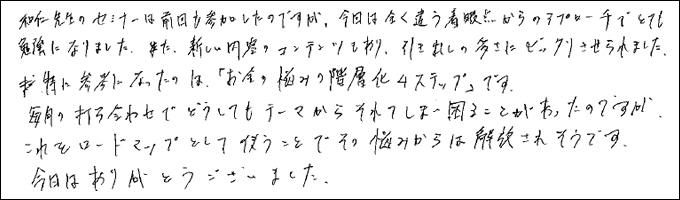 和仁先生のセミナーは前回も参加したのですが、今日は全く違う着眼点からのアプローチでとても
勉強になりました。また、新しい内容のコンテンツもあり、引き出しの多さにビックリさせられました。
特に参考になったのは、「お金の悩みの階層化4ステップ」です。
毎月の打ち合わせでどうしてもテーマからそれてしまい困ることがあったのですが、
これをロードマップとして使うことでその悩みからは解放されそうです。
今日はありがとうございました。